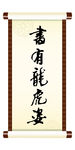 書有龍虎姿